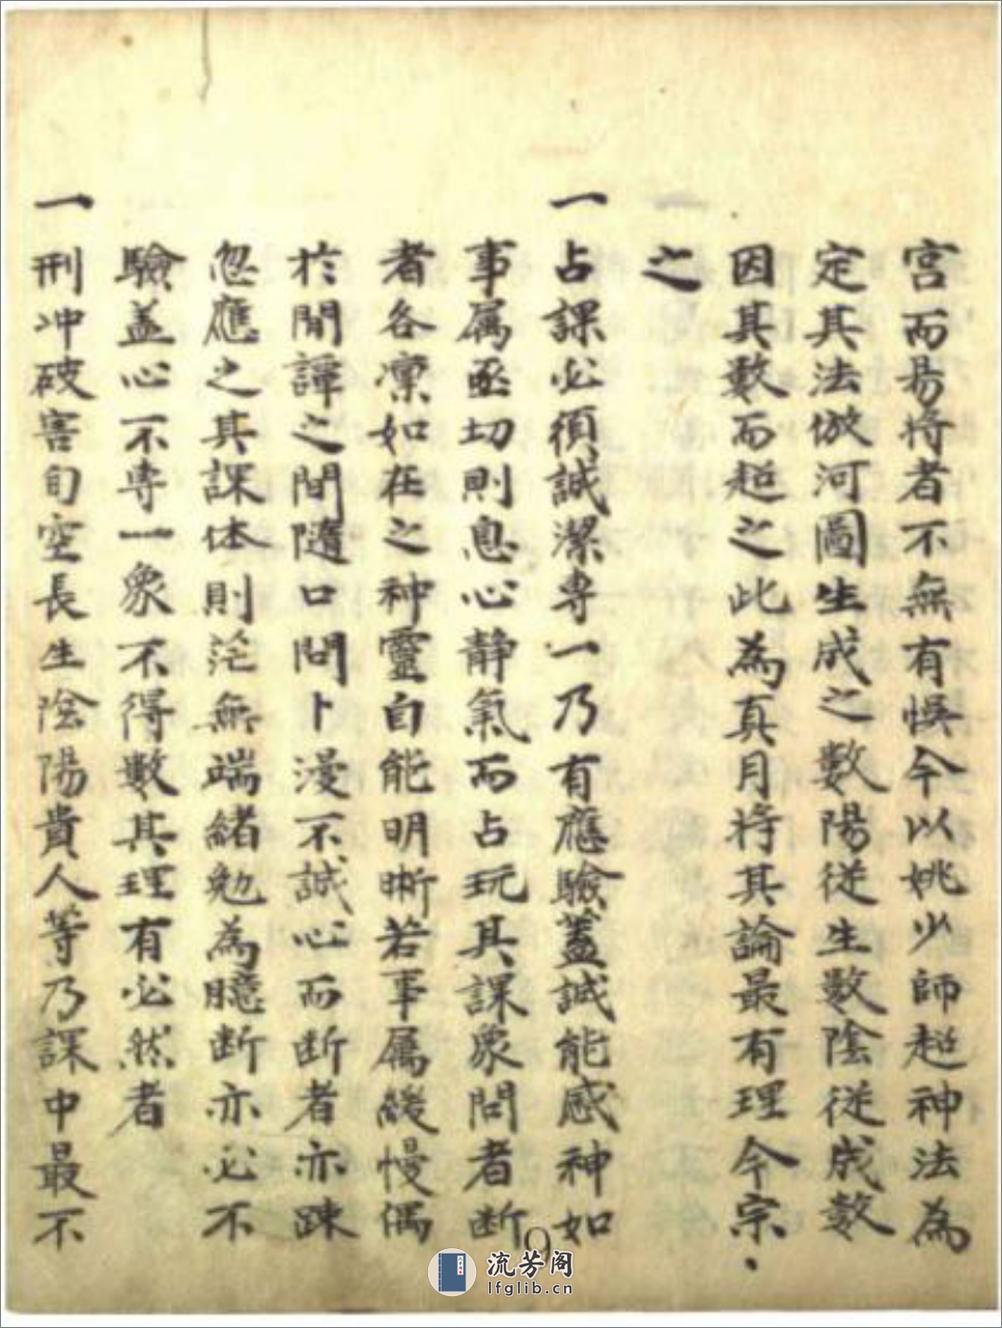 宮而易将者不無有悞今以姚少師超神法為
定其法倣河圖生成之數陽従生數陰従成數
因其數而超之此為真月将其論最有理今宗
之
一占課必須誠潔専一乃有應驗蓋誠能感神如
事属亟切則息心静氣而占玩其課象問者断
者各凜如在之神靈自能明晰若事属緩慢偶
於閒譚之間隨口問卜漫不誠心而断者亦踈
忽應之其課体則茫無端緒勉為臆断亦必不
驗蓋心不専一象不得數其理有必然者
一刑冲破害旬空長生陰陽貴人等乃課中最不
9
流芳阁
lfglib.cn